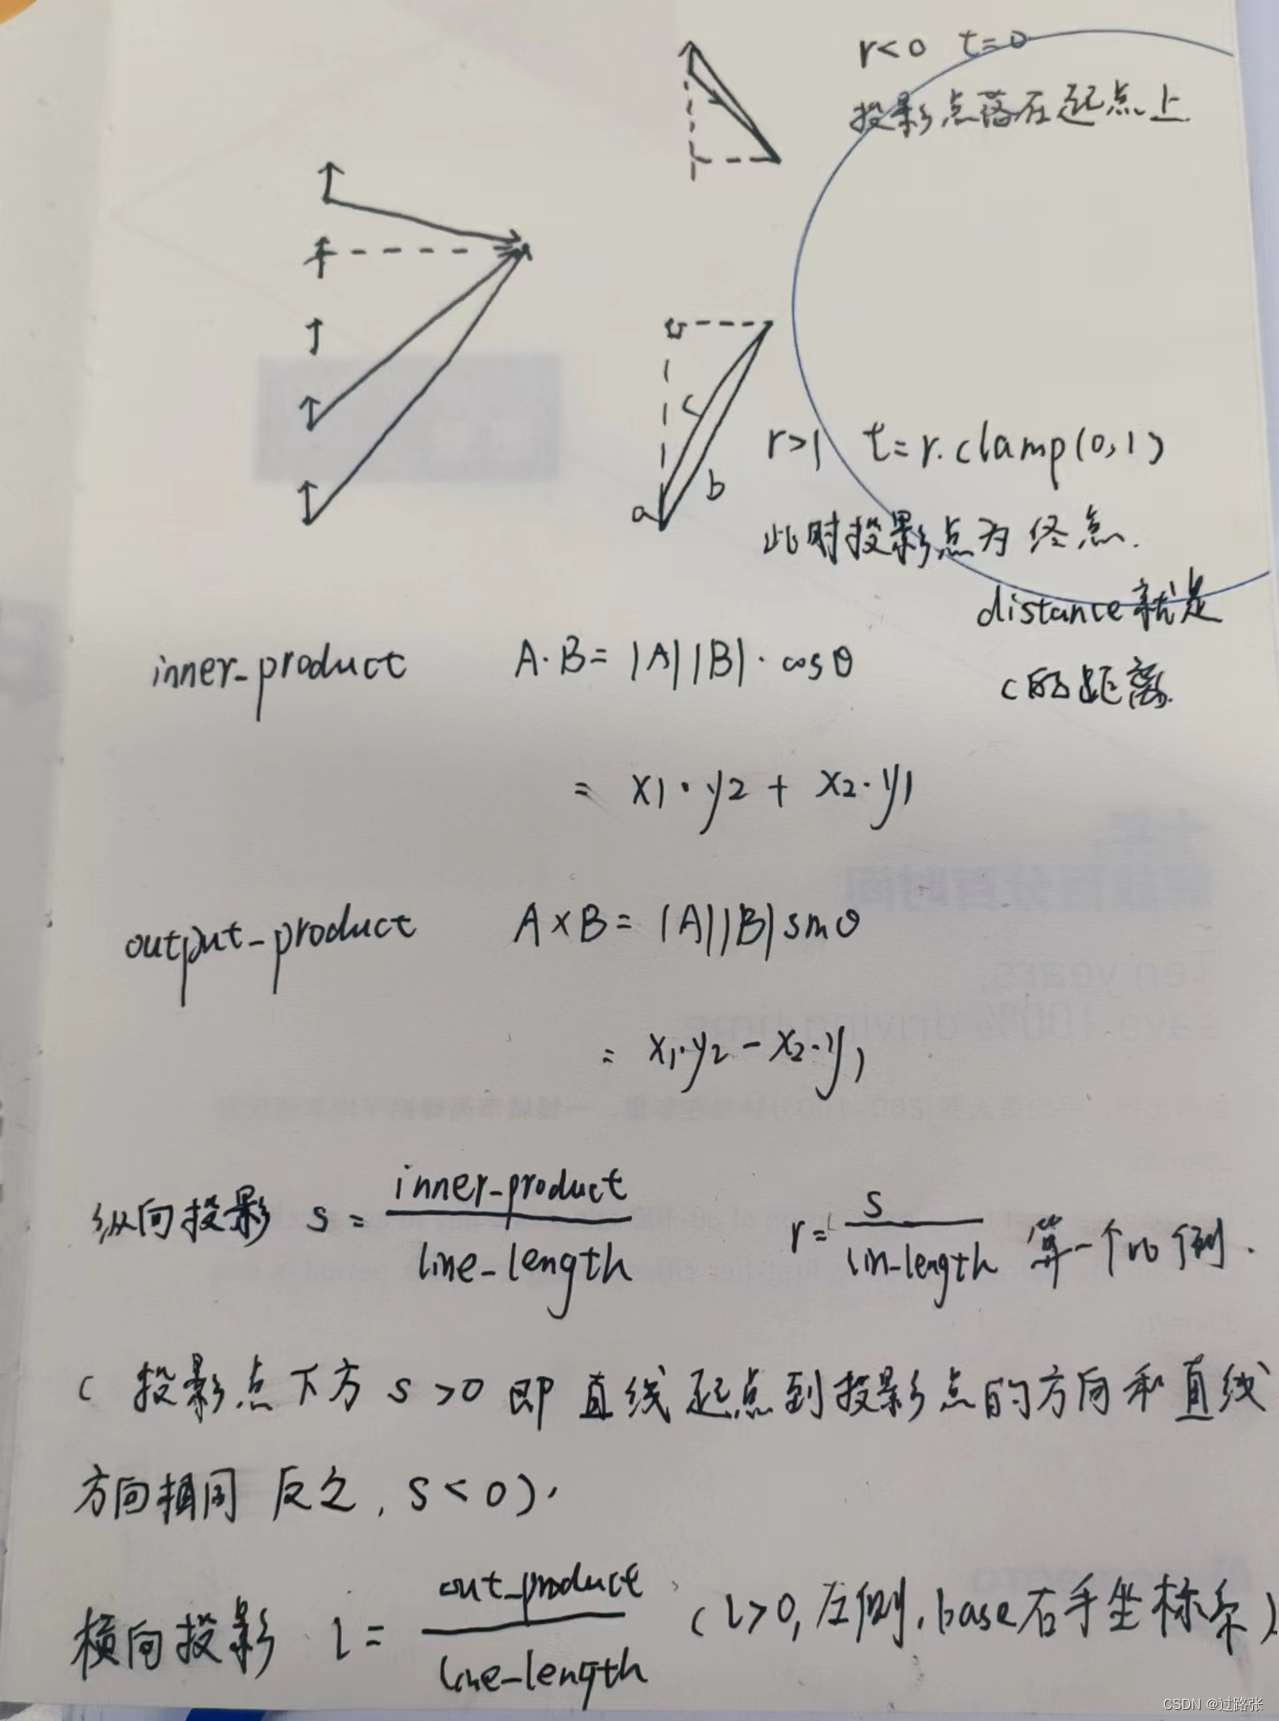 r<0 t=0
投影点落在起点上
c
a
b
r>1 t=r.clamp(0,1)
此时投影点为终点.
distance就是
c的距离.
inner_product A·B=|A||B|·cosθ
= x1·y2+x2·y1
output_product A×B=|A||B|sinθ
= x1·y2-x2·y1
纵向投影 s=inner_product/line_length r=s/lin-length 算一个比例.
( 投影点下方 s>0 即 直线起点到投影点的方向和直线
方向相同 反之, s<0).
横向投影 l=out_product/line_length (l>0,左侧,base右手坐标系)
十年
解放百分百时间
Ten years,
save 100% driving time
CSDN @过路张